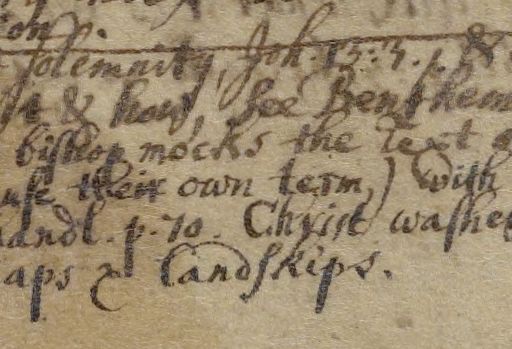 on p.
solemnity, Joh. 13: 5. &
& how, See Benthem
bishop mocks the Text
use their own term,) with
handl. p. 70. Christ washe
aps & Landskips.